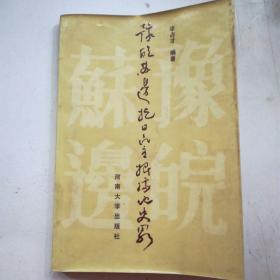 李占才 编著
豫皖苏边抗日民主根据地史略
豫皖
蘇邊
河南大学出版社